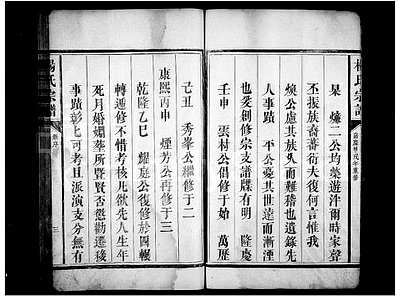 楊氏宗譜
杲 燫二公均羙遊泮爾時家聲
丕振族裔蕃衍夫復何言惟我
煥公慮其族大而難稽也遺錄先
人事蹟 平公憂其世遠而漸湮
也爰創修宗支譜牒有明 隆慶
壬申 雲村公倡修于始 萬歷
己丑 秀峯公繼修于二
康熙丙申 煙芳公再修于三
乾隆乙巳 耀庭公復修於四輾
轉遞修不惜考核凡欲先人生年
死月婚姻塟所暨賢否懲勸遷移
事蹟彰彰可考且派演支分無有
楊氏宗譜
三